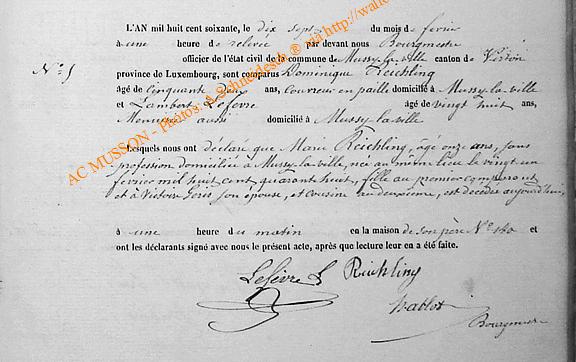 L'AN mil huit cent soixante, le dix sept du mois de février
à une heure de relevée par devant nous Bourgmestre
officier de l'état civil de la commune de Mussy-la-ville canton de Virton
N° 5
province de Luxembourg, sont comparus Dominique Reichling
âgé de cinquante deux ans, Couvreur en paille domicilié à Mussy-la-ville
et Lambert Lefevre âgé de vingt huit ans,
aussi domicilié à Mussy-la-ville
Lesquels nous ont déclaré que Marie Reichling, âgé onze ans, sans
profession domiciliée à Mussy-la-ville, née au même lieu le vingt un
février mil huit cent quarante huit, fille au premier comparant
et à Victoire son épouse, et cousine au deuxième, est décédée aujourd'hui,
à une heure du matin en la maison de son père N° 140 et
ont les déclarants signé avec nous le présent acte, après que lecture leur en a été faite.
Lefèvre L Reichling
Bourgmestre
AC MUSSON - Photos: A. Schneidesch ® via http://wall